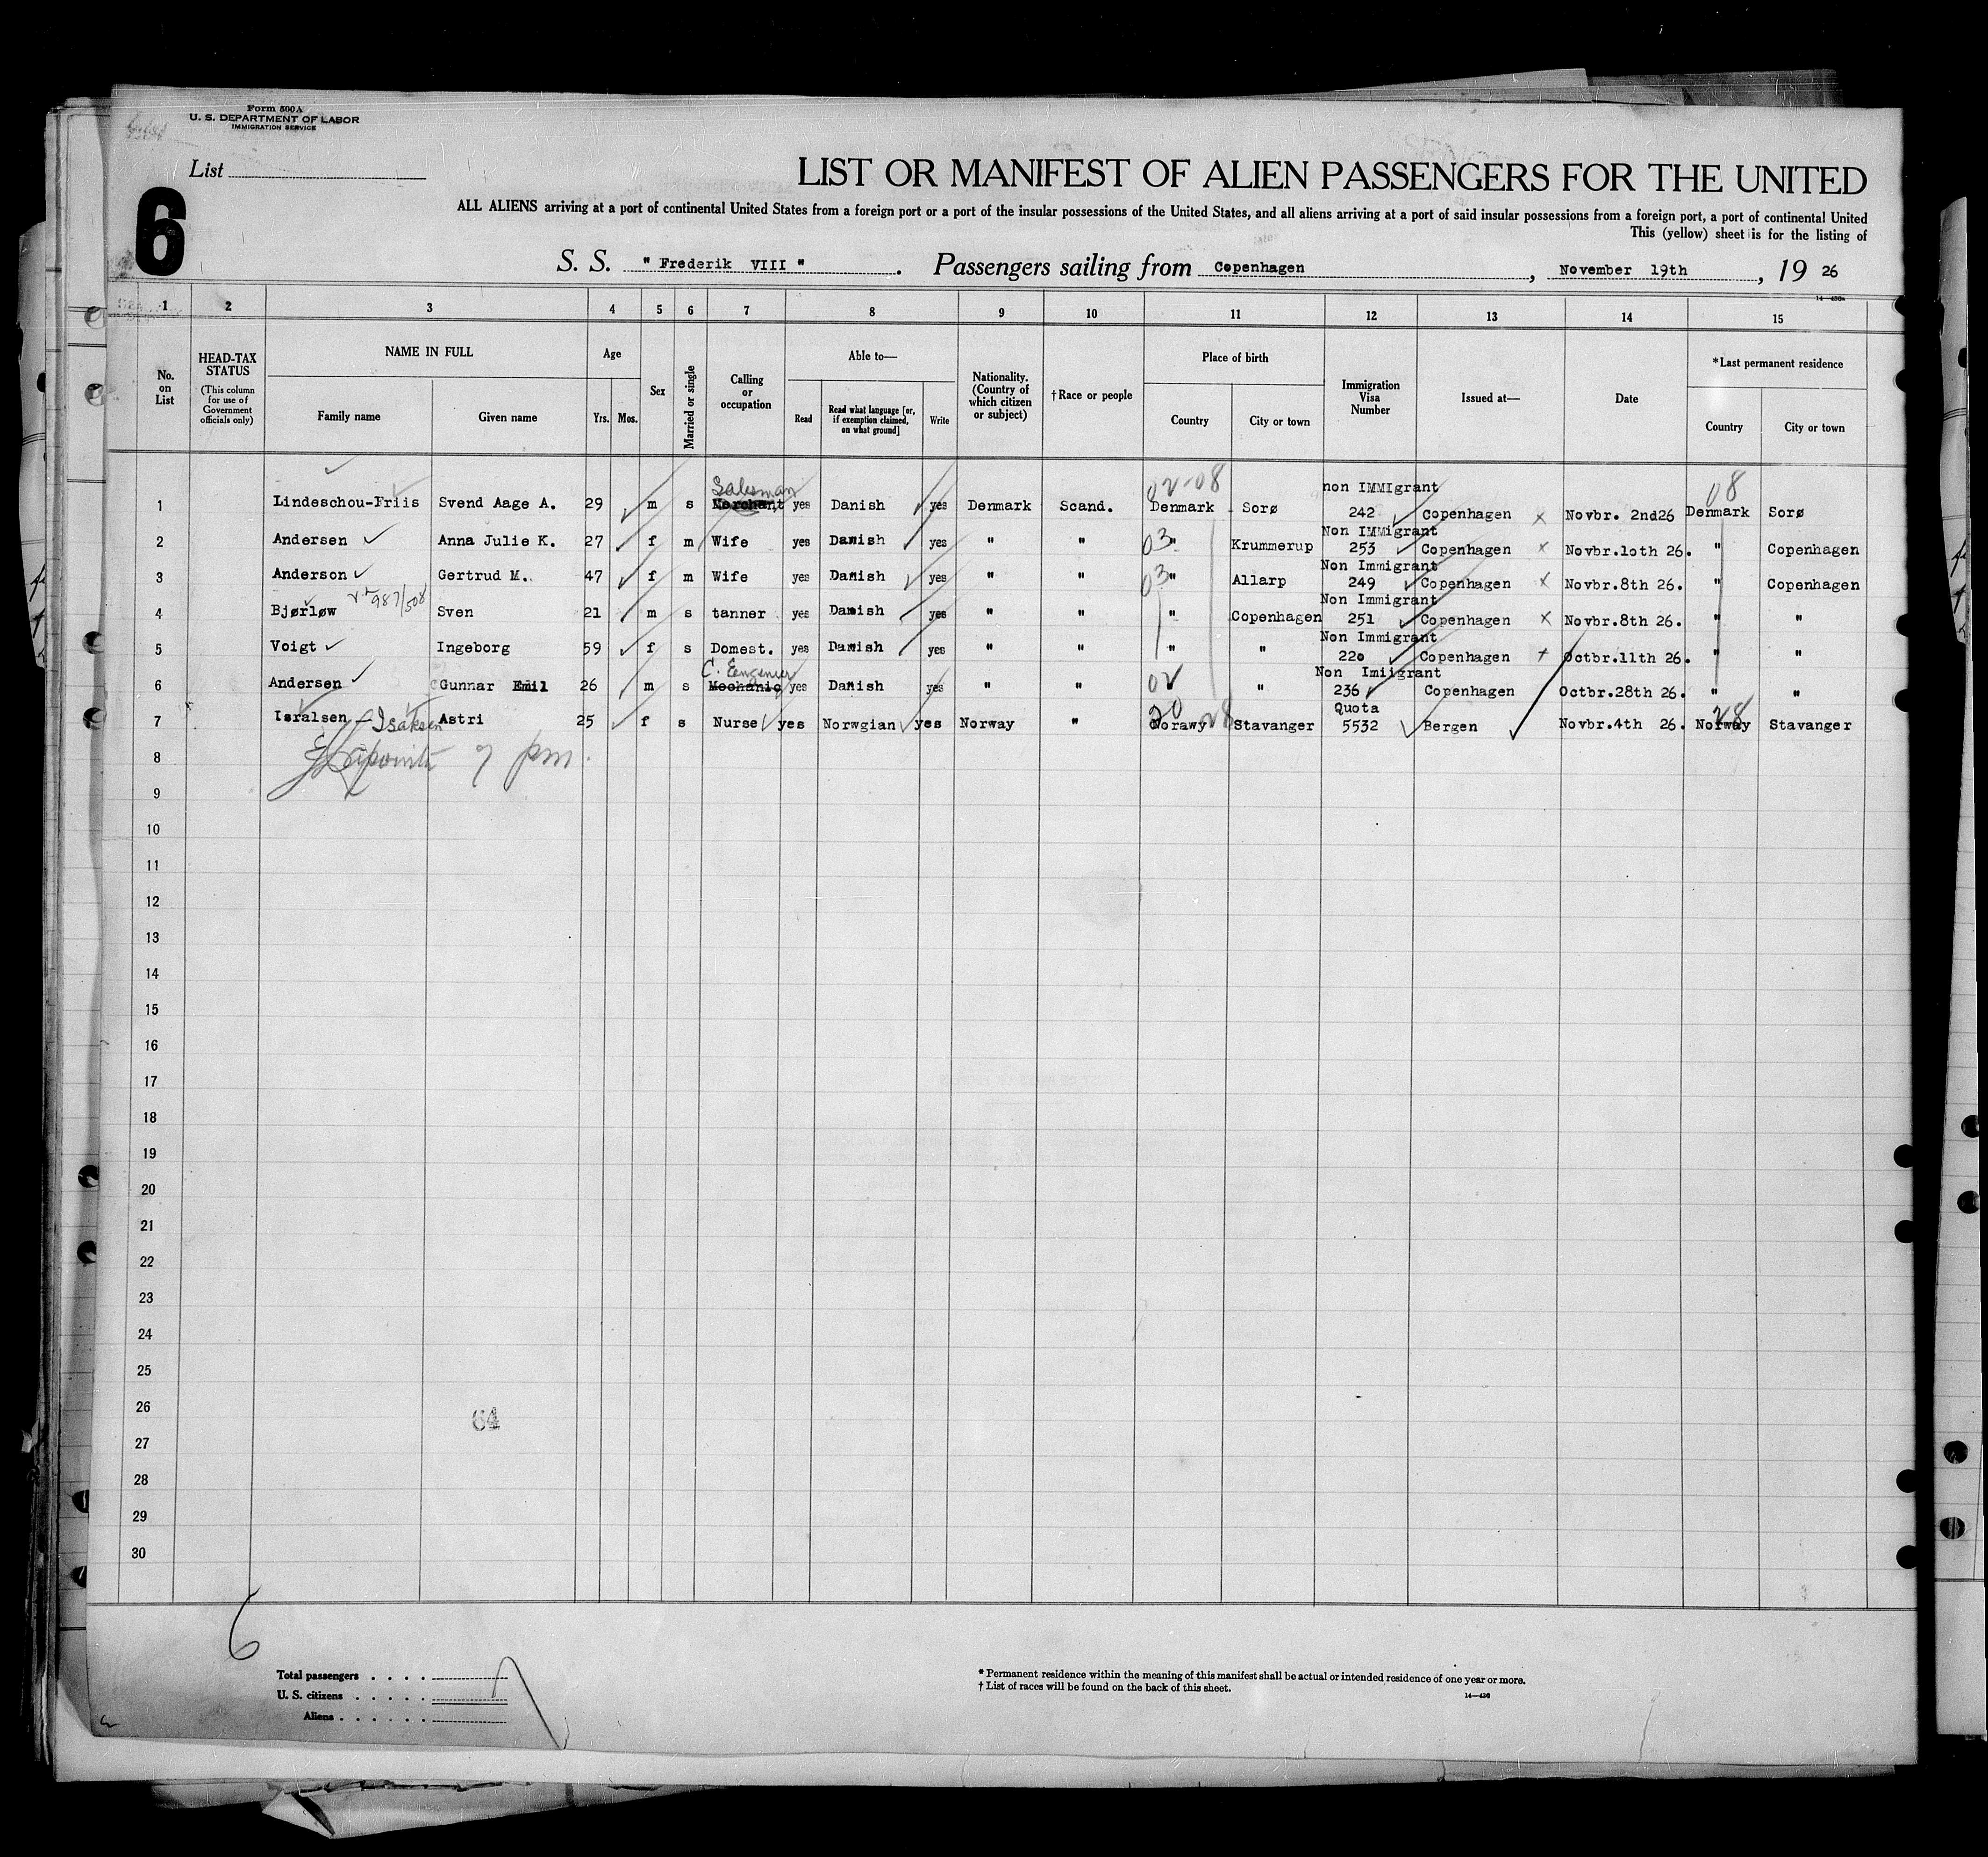 Form 500A
U. S. DEPARTMENT OF LABOR
IMMIGRATION SERVICE
List
6
LIST OR MANIFEST OF ALIEN PASSENGERS FOR THE UNITED
ALL ALIENS arriving at a port of continental United States from a foreign port or a port of the insular possessions of the United States, and all aliens arriving at a port of said insular possessions from a foreign port, a port of continental United
This (yellow) sheet is for the listing of
S. S. " Frederik VIII " . Passengers sailing from Copenhagen , November 19th , 19 26
1 2 3 4 5 6 7 8 9 10 11 12 13 14 15
No. on List
HEAD-TAX STATUS
(This column for use of Government officials only)
NAME IN FULL
Family name Given name
Age
Yrs. Mos.
Sex
Married or single
Calling or occupation
Able to—
Read
Read what language [or, if exemption claimed, on what ground]
Write
Nationality. (Country of which citizen or subject)
†Race or people
Place of birth
Country City or town
Immigration Visa Number
Issued at—
Date
*Last permanent residence
Country City or town
Salesman 02-08 non IMMIgrant 08
1 Lindeschou-Friis Svend Aage A. 29 m s Merchant yes Danish yes Denmark Scand. Denmark Sorø 242 Copenhagen x Novbr. 2nd26 Denmark Sorø
Non IMMigrant
2 Andersen Anna Julie K. 27 f m Wife yes Danish yes " " 03 " Krummerup 253 Copenhagen x Novbr.1oth 26. " Copenhagen
Non Immigrant
3 Anderson Gertrud M. 47 f m Wife yes Danish yes " " 03 " Allarp 249 Copenhagen x Novbr.8th 26. " Copenhagen
987/508 Non Immigrant
4 Bjørløw Sven 21 m s tanner yes Danish yes " " " Copenhagen 251 Copenhagen x Novbr.8th 26. " "
Non Immigrant
5 Voigt Ingeborg 59 f s Domest. yes Danish yes " " " " 22o Copenhagen x Octbr.11th 26. " "
C. Eengenier Non Imiigrant
6 Andersen Gunnar Emil 26 m s Mechanic yes Danish yes " " 02 " 236 Copenhagen Octbr.28th 26. " "
20 Quota 28
7 Isralsen - Isaksen Astri 25 f s Nurse yes Norwgian yes Norway " Norawy 28 Stavanger 5532 Bergen Novbr.4th 26. Norway Stavanger
8 7 pm.
9
10
11
12
13
14
15
16
17
18
19
20
21
22
23
24
25
26
64
27
28
29
30
6
Total passengers . . . .
U. S. citizens . . . . .
Aliens . . . . . .
* Permanent residence within the meaning of this manifest shall be actual or intended residence of one year or more.
† List of races will be found on the back of this sheet.
14—430